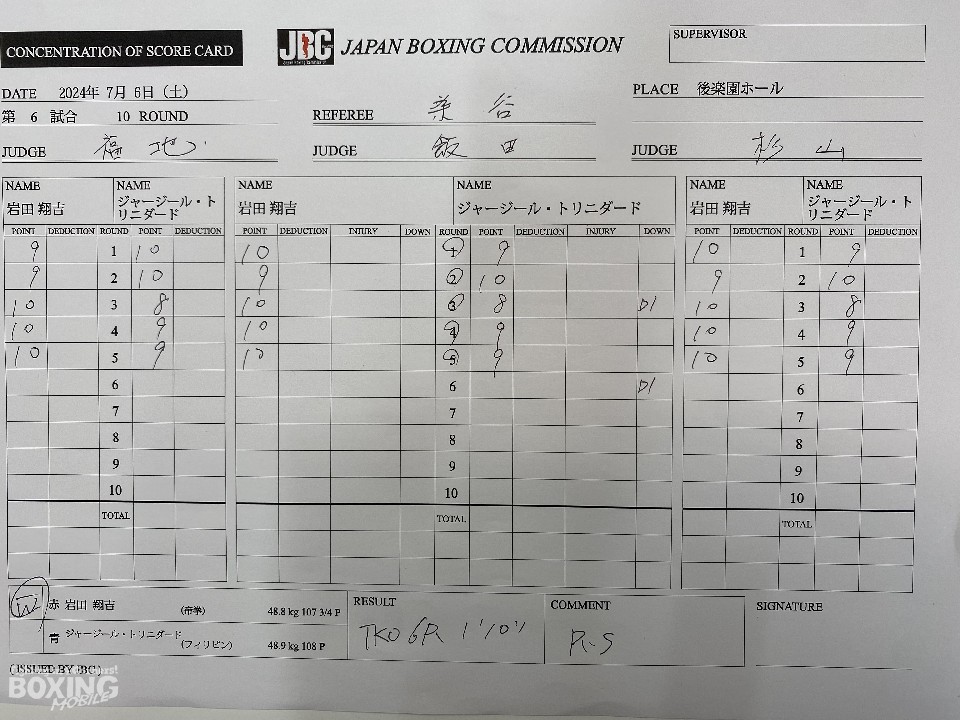 CONCENTRATION OF SCORE CARD
JBC JAPAN BOXING COMMISSION
SUPERVISOR
DATE 2024年 7月 6日 (土)
PLACE 後楽園ホール
第 6 試合 10 ROUND
REFEREE 染谷
JUDGE 福地
JUDGE 飯田
JUDGE 杉山
NAME NAME NAME NAME NAME NAME
岩田 翔吉 ジャージール・トリニダード 岩田 翔吉 ジャージール・トリニダード 岩田 翔吉 ジャージール・トリニダード
POINT DEDUCTION ROUND POINT DEDUCTION POINT DEDUCTION INJURY DOWN ROUND POINT DEDUCTION INJURY DOWN POINT DEDUCTION ROUND POINT DEDUCTION
9 1 10 10 1 9 10 1 9
9 2 10 9 2 10 9 2 10
10 3 8 10 3 8 D1 10 3 8
10 4 9 10 4 9 10 4 9
10 5 9 10 5 9 10 5 9
6 6 D1 6
7 7 7
8 8 8
9 9 9
10 10 10
TOTAL TOTAL TOTAL
W 赤 岩田 翔吉 (帝拳) 48.8 kg 107 3/4 P
青 ジャージール・トリニダード (フィリピン) 48.9 kg 108 P
RESULT
TKO 6R 1'10"
COMMENT
R-S
SIGNATURE
(ISSUED BY JBC)
BOXING
MOBILE